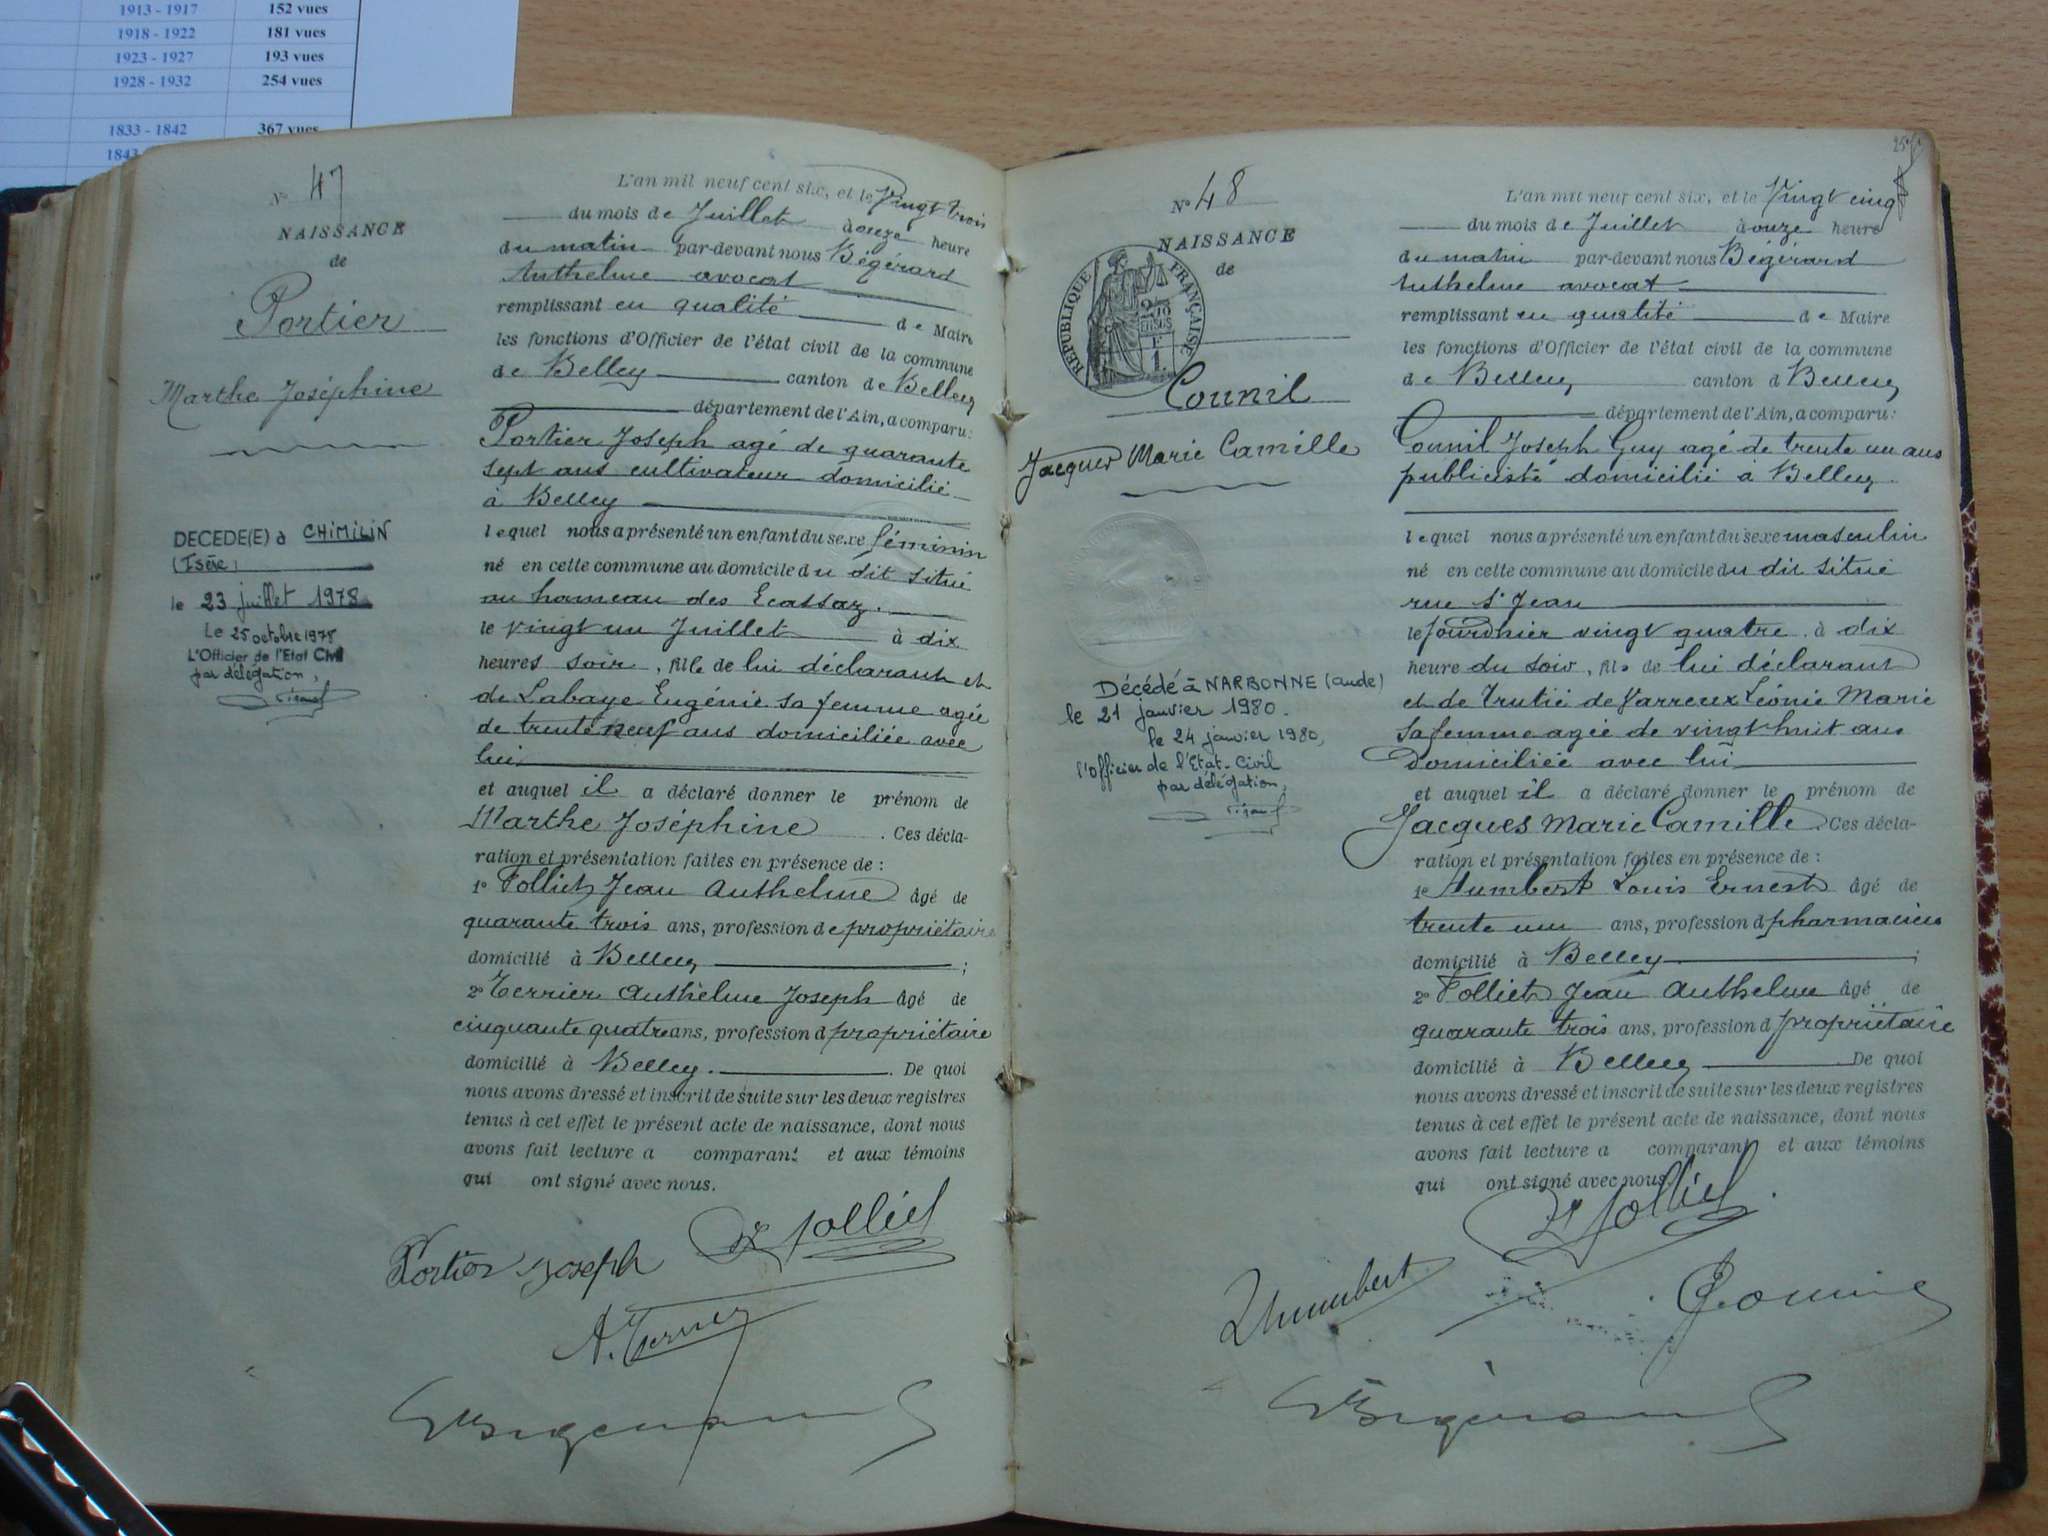 1913 - 1917 152 vues
1918 - 1922 181 vues
1923 - 1927 193 vues
1928 - 1932 254 vues
1833 - 1842 367 vues
1843
N° 47
NAISSANCE
de
Portier
Marthe Joséphine
DECEDE(E) à CHIMILIN
(Isère)
le 23 juillet 1978
Le 25 octobre 1978
L'Officier de l'Etat Civil
par délégation,
L'an mil neuf cent six, et le Vingt trois
du mois de Juillet à onze heure
du matin par-devant nous Bégérard
Anthelme avocat
remplissant en qualité de Maire
les fonctions d'Officier de l'état civil de la commune
de Belley canton de Belley
département de l'Ain, a comparu:
Portier Joseph agé de quarante
sept ans cultivateur domicilié
à Belley
lequel nous a présenté un enfant du sexe féminin
né en cette commune au domicile du dit situé
au hameau des Ecassaz.
le vingt un Juillet à dix
heures soir, fille de lui déclarant et
de Labaye Eugénie sa femme agée
de trente neuf ans domiciliée avec
lui
et auquel il a déclaré donner le prénom de
Marthe Joséphine. Ces décla-
ration et présentation faites en présence de :
1° Folliet Jean Anthelme âgé de
quarante trois ans, profession de propriétaire
domicilié à Belley ;
2° Terrier Anthelme Joseph âgé de
cinquante quatre ans, profession d propriétaire
domicilié à Belley. De quoi
nous avons dressé et inscrit de suite sur les deux registres
tenus à cet effet le présent acte de naissance, dont nous
avons fait lecture a comparant et aux témoins
qui ont signé avec nous.
Portier Joseph Folliet
A. Terrier
Bégérard
25
N° 48
NAISSANCE
de
RÉPUBLIQUE FRANÇAISE
2/10 EN SUS
1
Counil
Jacques Marie Camille
Décédé à NARBONNE (aude)
le 21 janvier 1980.
le 24 janvier 1980,
l'Officier de l'Etat-Civil
par délégation,
L'an mil neuf cent six, et le Vingt cinq
du mois de Juillet à onze heure
du matin par-devant nous Bégérard
Anthelme avocat
remplissant en qualité de Maire
les fonctions d'Officier de l'état civil de la commune
de Belley canton d Belley
département de l'Ain, a comparu:
Counil Joseph Guy agé de trente un ans
publiciste domicilié à Belley
lequel nous a présenté un enfant du sexe masculin
né en cette commune au domicile du dit situé
rue St Jean
le jourd'hier vingt quatre à dix
heure du soir, fils de lui déclarant
et de Trutié de Varreux Léonie Marie
sa femme agée de vingt huit ans
Domiciliée avec lui
et auquel il a déclaré donner le prénom de
Jacques Marie Camille. Ces décla-
ration et présentation faites en présence de :
1e Humbert Louis Ernest âgé de
trente un ans, profession d pharmacien
domicilié à Belley ;
2° Folliet Jean Anthelme âgé de
quarante trois ans, profession d propriétaire
domicilié à Belley De quoi
nous avons dressé et inscrit de suite sur les deux registres
tenus à cet effet le présent acte de naissance, dont nous
avons fait lecture a comparant et aux témoins
qui ont signé avec nous.
Folliet
Humbert Counil
Bégérard